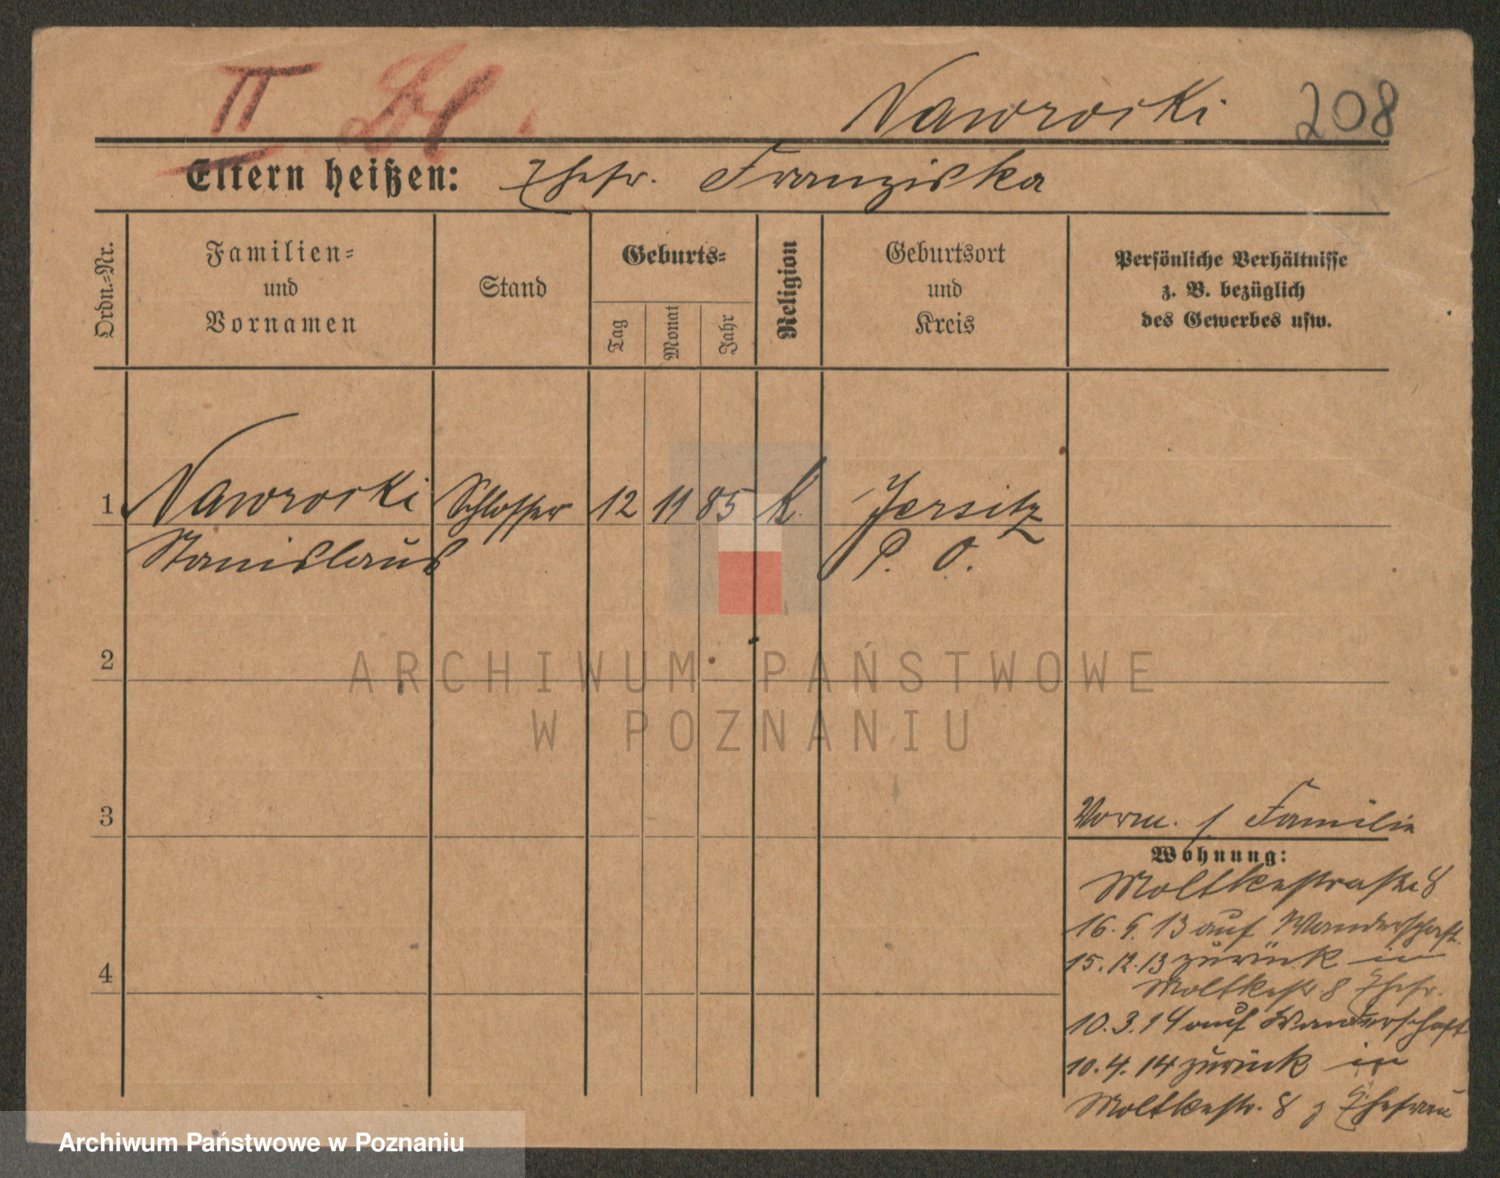 II Bl.
Nawrocki 208
Eltern heißen: Ehefr. Franziska
Ordn.-Nr.
Familien-
und
Vornamen
Stand
Geburts-
Tag
Monat
Jahr
Religion
Geburtsort
und
Kreis
Persönliche Verhältnisse
z. B. bezüglich
des Gewerbes usw.
1 Nawrocki Schlosser 12 11 85 k. Jersitz
Stanislaus P. O.
2
ARCHIWUM PAŃSTWOWE
W POZNANIU
3
Vorm. s. Familie
Wohnung:
Moltkestraße 8
16. 9. 13 auf Wanderschaft
15. 12. 13 zurück in
4
Moltkestr 8 Ehefr.
10. 3. 14 auf Wanderschaft
10. 4. 14 zurück in
Moltkestr. 8 z Ehefrau
Archiwum Państwowe w Poznaniu